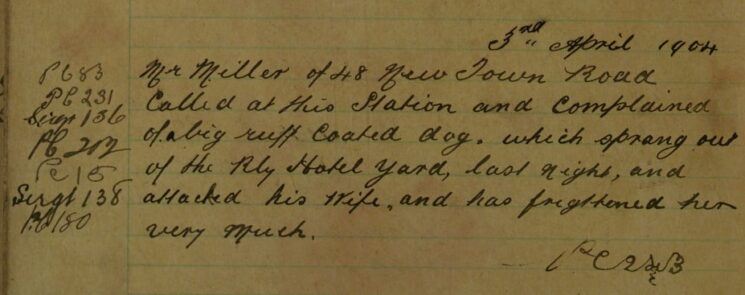 3rd April 1904
PC 83
PC 231
Sergt 136
PC 202
PC 15
Sergt 138
PC 180
Mr Miller of 48 New Town Road
Called at this Station and Complained
of a big ruff Coated dog. which sprang out
of the Rly Hotel Yard, last night, and
attacked his Wife, and has frigthened her
very much.
PC